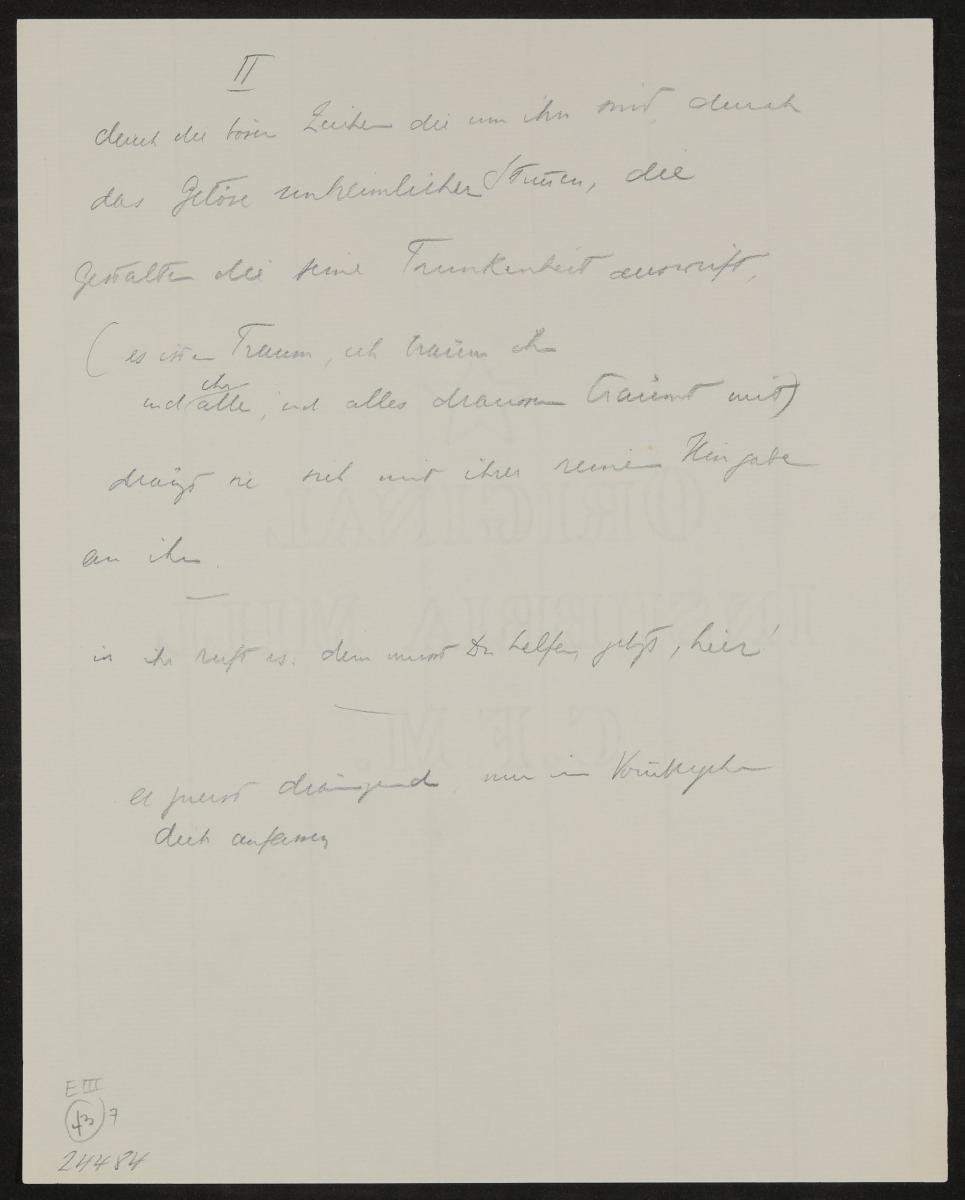 II
durch die bösen Zeichen die um ihn sind, durch
das Getöse unheimlicher Stimmen, die
Gestalten die seine Trunkenheit auswirft,
(es ist ein Traum, ich träum ihn
und ihr alle, und alles draussen träumt mit)
drängt sie sich mit ihrer reinen Hingabe
an ihn.
in ihr ruft es: dem musst Du helfen, jetzt, hier!
er zuerst drängend, nur im Vorübergehn
dich anfassen
ORIGINAL
MILL
C.F.M.
E III
43 7
24484